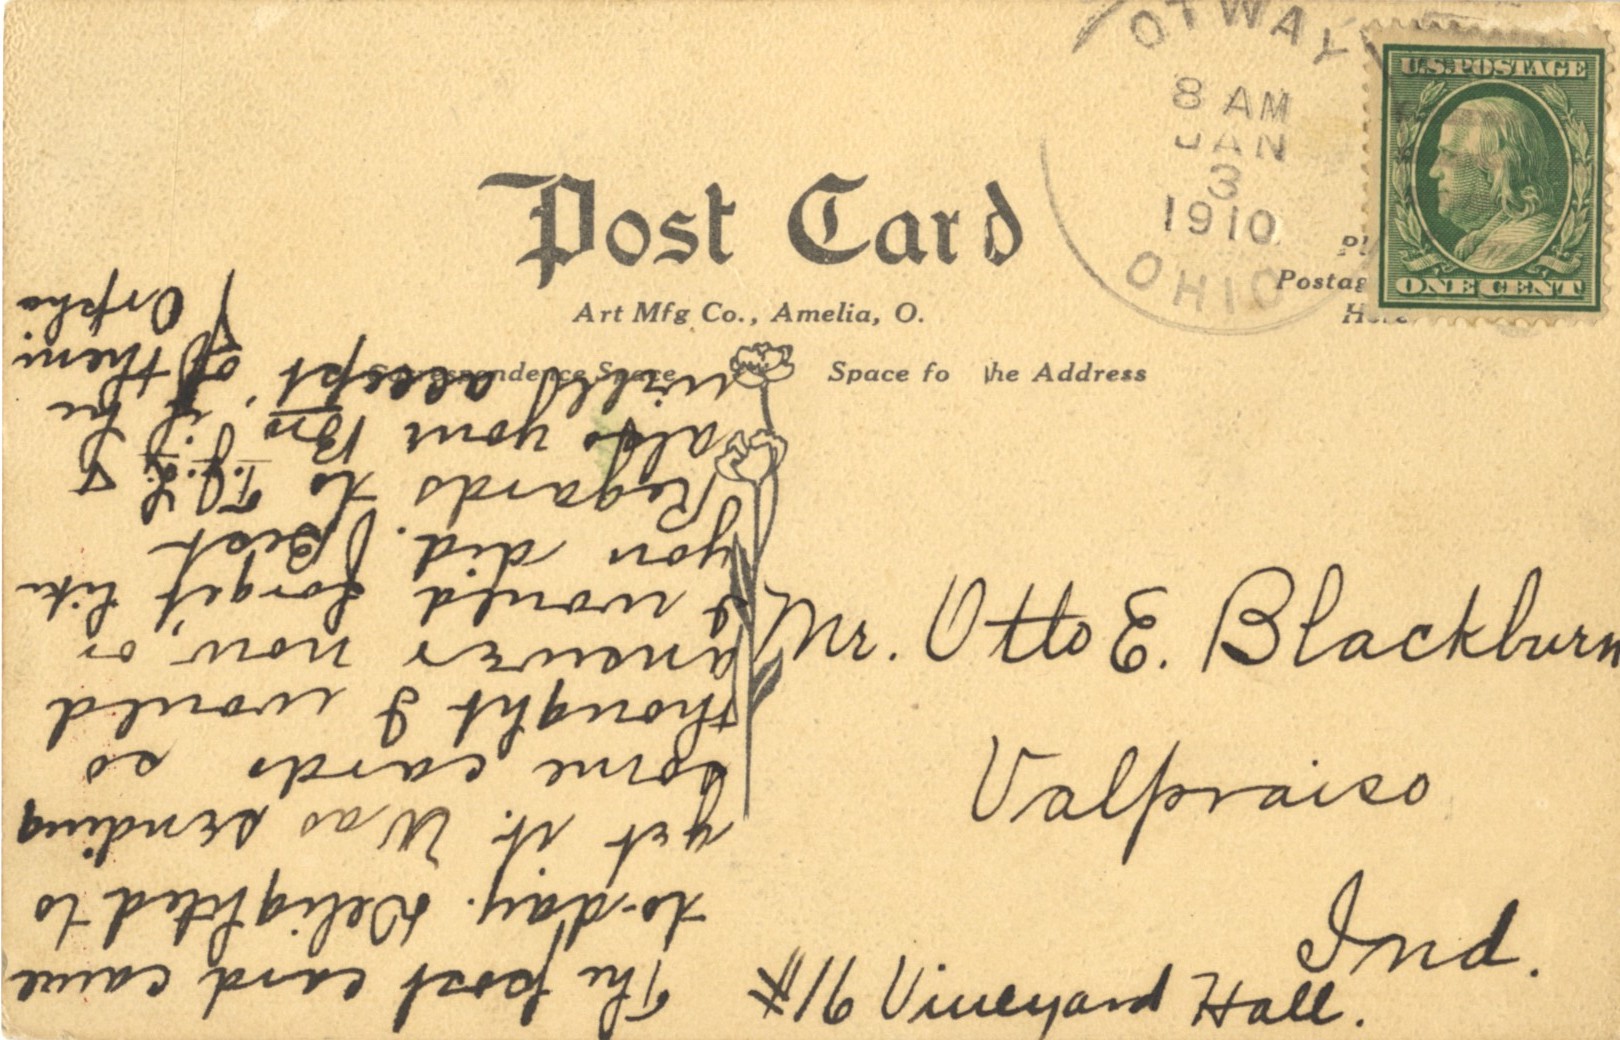 OTWAY
8 AM
JAN
3
1910
OHIO
U.S. POSTAGE
ONE CENT
Post Card
Postag
Art Mfg Co., Amelia, O.
Correspondence Space
Space fo he Address
Mr. Otto E. Blackburn
Valpraiso
Ind.
#16 Vineyard Hall.
The post card came
to-day. Delighted to
get it. Was sending
some cards so
thought I would
answer now, or
I would forget like
you did. Best
Regards to T.J.L. &
also your Bro J.J. if he
will accept of them.
Orpha